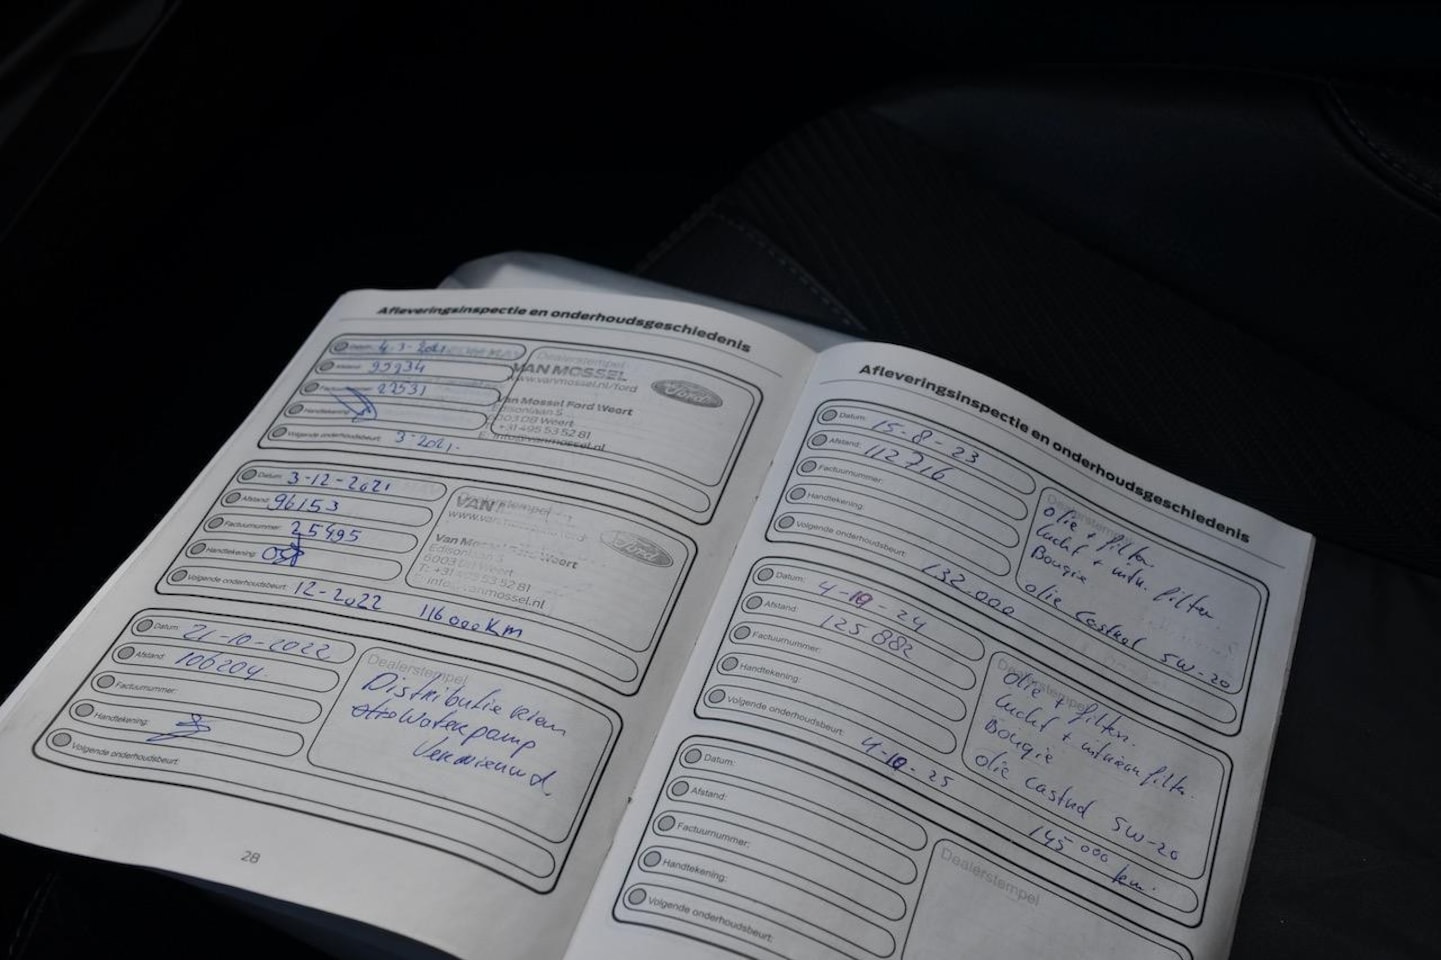 Afleveringsinspectie en onderhoudsgeschiedenis
Datum: 4-3-2021
Afstand: 95934
Factuurnummer: 27531
Handtekening:
Volgende onderhoudsbeurt: 3-2021.
Dealerstempel
VAN MOSSEL
www.vanmossel.nl/ford
Ford
Van Mossel Ford Weert
Edisonlaan 5
6003 DB Weert
T: +31 495 53 52 81
E: info@vanmossel.nl
Datum: 3-12-2021
Afstand: 96153
Factuurnummer: 25495
Handtekening:
Volgende onderhoudsbeurt: 12-2022 116000km
Dealerstempel
VAN
Ford
Van Mossel Ford Weert
Edisonlaan 5
6003 DB Weert
T: +31 495 53 52 81
E: info@vanmossel.nl
Datum: 21-10-2022
Afstand: 106204
Factuurnummer:
Handtekening:
Volgende onderhoudsbeurt:
Dealerstempel
Distributie riem
Waterpomp
Vernieuwd
28
Afleveringsinspectie en onderhoudsgeschiedenis
Datum: 15-8-23
Afstand: 112716
Factuurnummer:
Handtekening:
Volgende onderhoudsbeurt: 132.000
Dealerstempel
olie + filter
lucht + intr. filter.
Bougie
olie Castrol 5W-20
Datum: 4-10-24
Afstand: 125882
Factuurnummer:
Handtekening:
Volgende onderhoudsbeurt: 4-10-25 145000 km.
Dealerstempel
olie + filter.
lucht + filter.
Bougie
olie Castrol 5W-20
Datum:
Afstand:
Factuurnummer:
Handtekening:
Volgende onderhoudsbeurt:
Dealerstempel